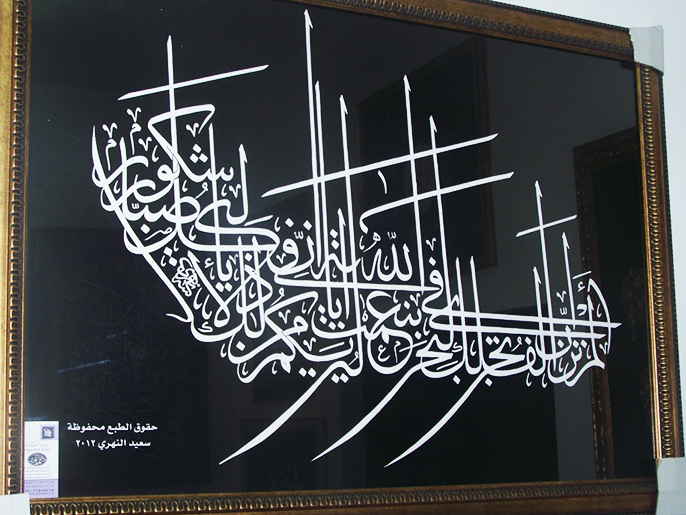 ألم تر أن الفلك تجري في البحر بنعمت الله ليريكم من آياته إن في ذلك لآيات لكل صبار شكور
حقوق الطبع محفوظة
سعيد النهري ٢٠١٢